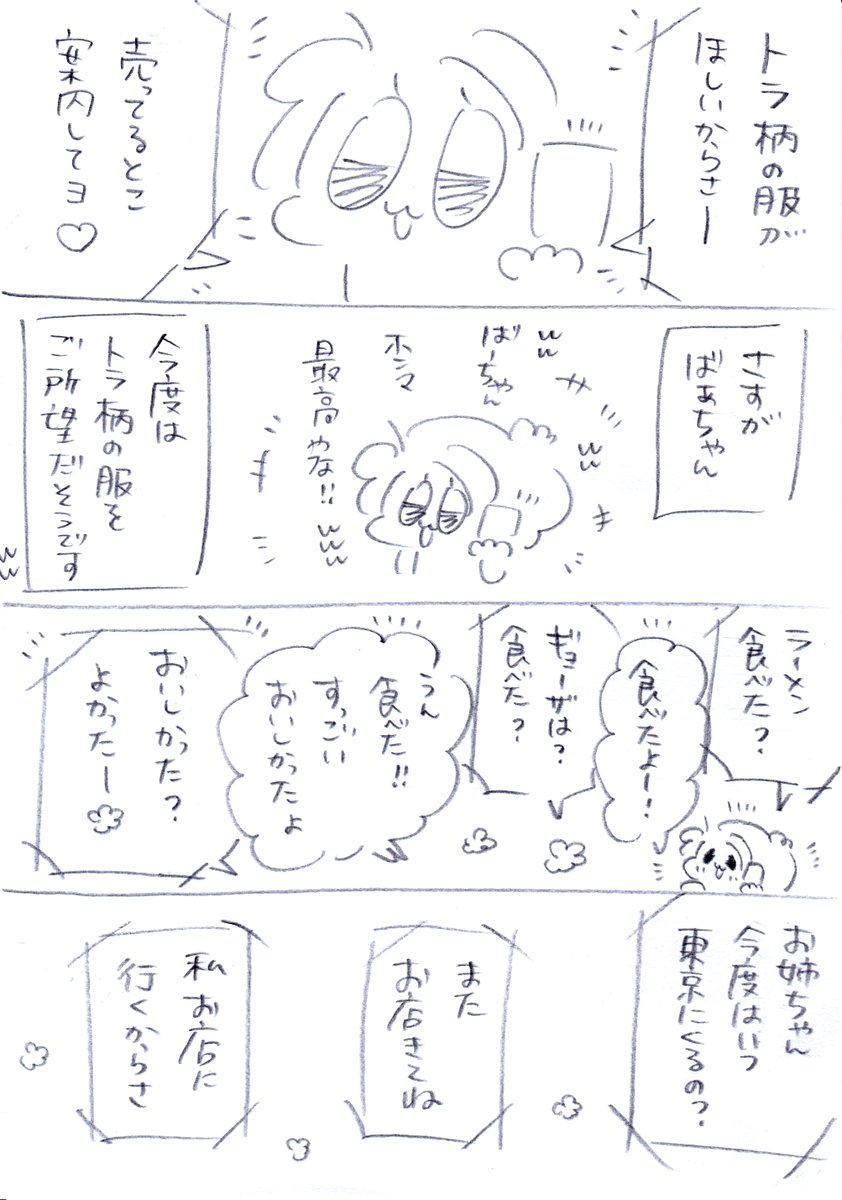 トラ柄の服が
ほしいからさー
売ってるとこ
案内してヨ♡
さすが
ばあちゃん
ww
ばーちゃん
ホンマ
最高やな!!
www
ww
今度は
トラ柄の服を
ご所望だそうです
ww
ラーメン
食べた?
食べたよー!
ギョーザは?
食べた?
うん
食べた!!
すっごい
おいしかったよ
おいしかった?
よかったー
お姉ちゃん
今度はいつ
東京にくるの?
また
お店きてね
私お店に
行くからさ